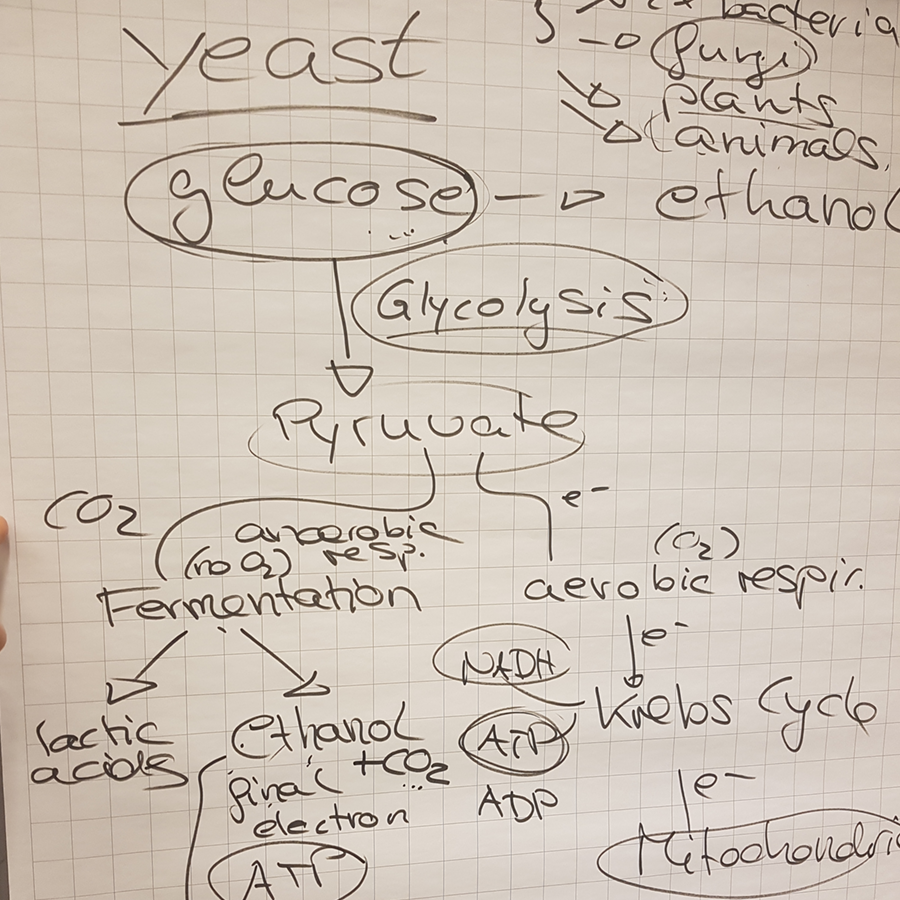 yeast
bacteria
fungi
plants
animals.
glucose → ethanol
Glycolysis
Pyruvate
CO2
e-
anaerobic
(no O2) resp.
(O2)
Fermentation
aerobic respir.
e-
NADH
Krebs Cycle
lactic
acids
ethanol
+CO2
ATP
final
electron
ADP
e-
ATP
Mitochondri